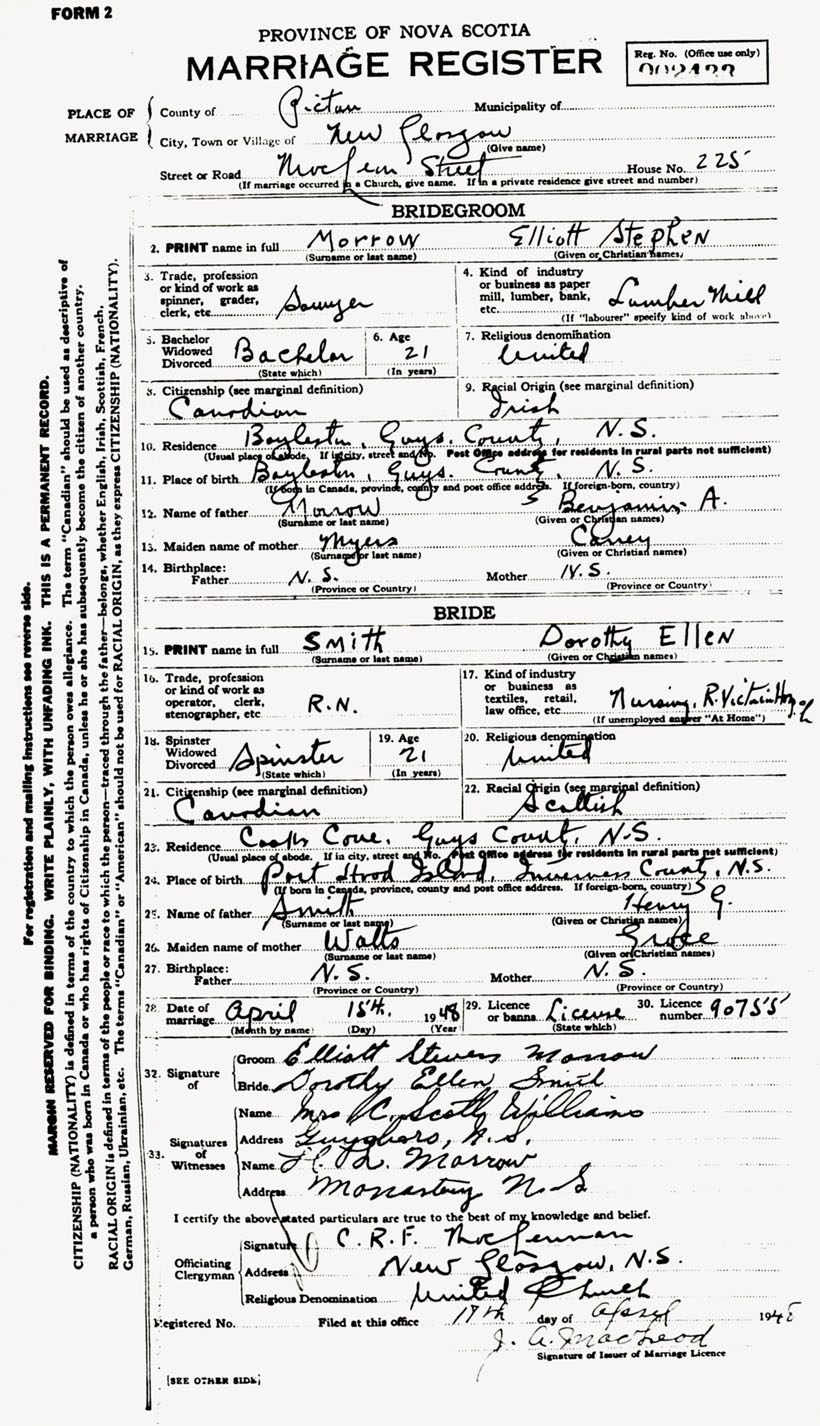 FORM 2
PROVINCE OF NOVA SCOTIA
MARRIAGE REGISTER
Reg. No. (Office use only)
002433
PLACE OF MARRIAGE
County of Pictou Municipality of
City, Town or Village of New Glasgow
(Give name)
Street or Road MacLean Street House No. 225
(If marriage occurred in a Church, give name. If in a private residence give street and number)
BRIDEGROOM
2. PRINT name in full Morrow Elliott Stephen
(Surname or last name) (Given or Christian names)
3. Trade, profession or kind of work as spinner, grader, clerk, etc. Sawyer
4. Kind of industry or business as paper mill, lumber, bank, etc. Lumber Mill
(If "labourer" specify kind of work above)
5. Bachelor Widowed Divorced Bachelor
(State which)
6. Age 21
(In years)
7. Religious denomination United
8. Citizenship (see marginal definition) Canadian
9. Racial Origin (see marginal definition) Irish
10. Residence Boylston, Guys. County, N.S.
(Usual place of abode. If in city, street and No. Post Office address for residents in rural parts not sufficient)
11. Place of birth Boylston, Guys. County, N.S.
(If born in Canada, province, county and post office address. If foreign-born, country)
12. Name of father Morrow Benjamin A.
(Surname or last name) (Given or Christian names)
13. Maiden name of mother Myers
(Surname or last name) (Given or Christian names)
14. Birthplace: Father N.S. Mother N.S.
(Province or Country) (Province or Country)
BRIDE
15. PRINT name in full Smith Dorothy Ellen
(Surname or last name) (Given or Christian names)
16. Trade, profession or kind of work as operator, clerk, stenographer, etc R.N.
17. Kind of industry or business as textiles, retail, law office, etc. Nursing, R. Victoria
(If unemployed answer "At Home")
18. Spinster Widowed Divorced Spinster
(State which)
19. Age 21
(In years)
20. Religious denomination United
21. Citizenship (see marginal definition) Canadian
22. Racial Origin (see marginal definition) Scottish
23. Residence Cooks Cove, Guys County, N.S.
(Usual place of abode. If in city, street and No. Post Office address for residents in rural parts not sufficient)
24. Place of birth Port Hood Island, Inverness County, N.S.
(If born in Canada, province, county and post office address. If foreign-born, country)
25. Name of father Smith Henry G.
(Surname or last name) (Given or Christian names)
26. Maiden name of mother Watts Grace
(Surname or last name) (Given or Christian names)
27. Birthplace: Father N.S. Mother N.S.
(Province or Country) (Province or Country)
28. Date of marriage April 15th. 1948
(Month by name) (Day) (Year)
29. Licence or banns License
(State which)
30. Licence number 90755
32. Signature of
Groom Elliott Stevens Morrow
Bride Dorothy Ellen Smith
33. Signatures of Witnesses
Name Mrs C. Scott Williams
Address Guysboro, N.S.
Name H. L. Morrow
Address Monastery N.S
I certify the above stated particulars are true to the best of my knowledge and belief.
Officiating Clergyman
Signature C. R. F. MacLennan
Address New Glasgow, N.S.
Religious Denomination United Church
Registered No. Filed at this office 17th day of April 1948
J. A. MacLeod
Signature of Issuer of Marriage Licence
[SEE OTHER SIDE]
For registration and mailing instructions see reverse side.
MARGIN RESERVED FOR BINDING. WRITE PLAINLY, WITH UNFADING INK. THIS IS A PERMANENT RECORD.
CITIZENSHIP (NATIONALITY) is defined in terms of the country to which the person owes allegiance. The term "Canadian" should be used as descriptive of
a person who was born in Canada or who has rights of Citizenship in Canada, unless he or she has subsequently become the citizen of another country.
RACIAL ORIGIN is defined in terms of the people or race to which the person—traced through the father—belongs, whether English, Irish, Scottish, French,
German, Russian, Ukrainian, etc. The terms "Canadian" or "American" should not be used for RACIAL ORIGIN, as they express CITIZENSHIP (NATIONALITY).